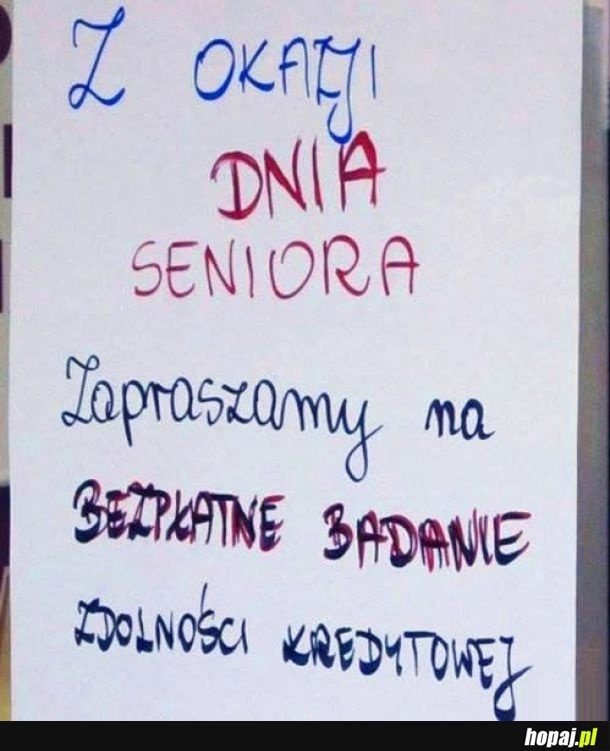 Z OKAZJI
DNIA
SENIORA
Zapraszamy na
BEZPŁATNE BADANIE
ZDOLNOŚCI KREDYTOWEJ
hopaj.pl